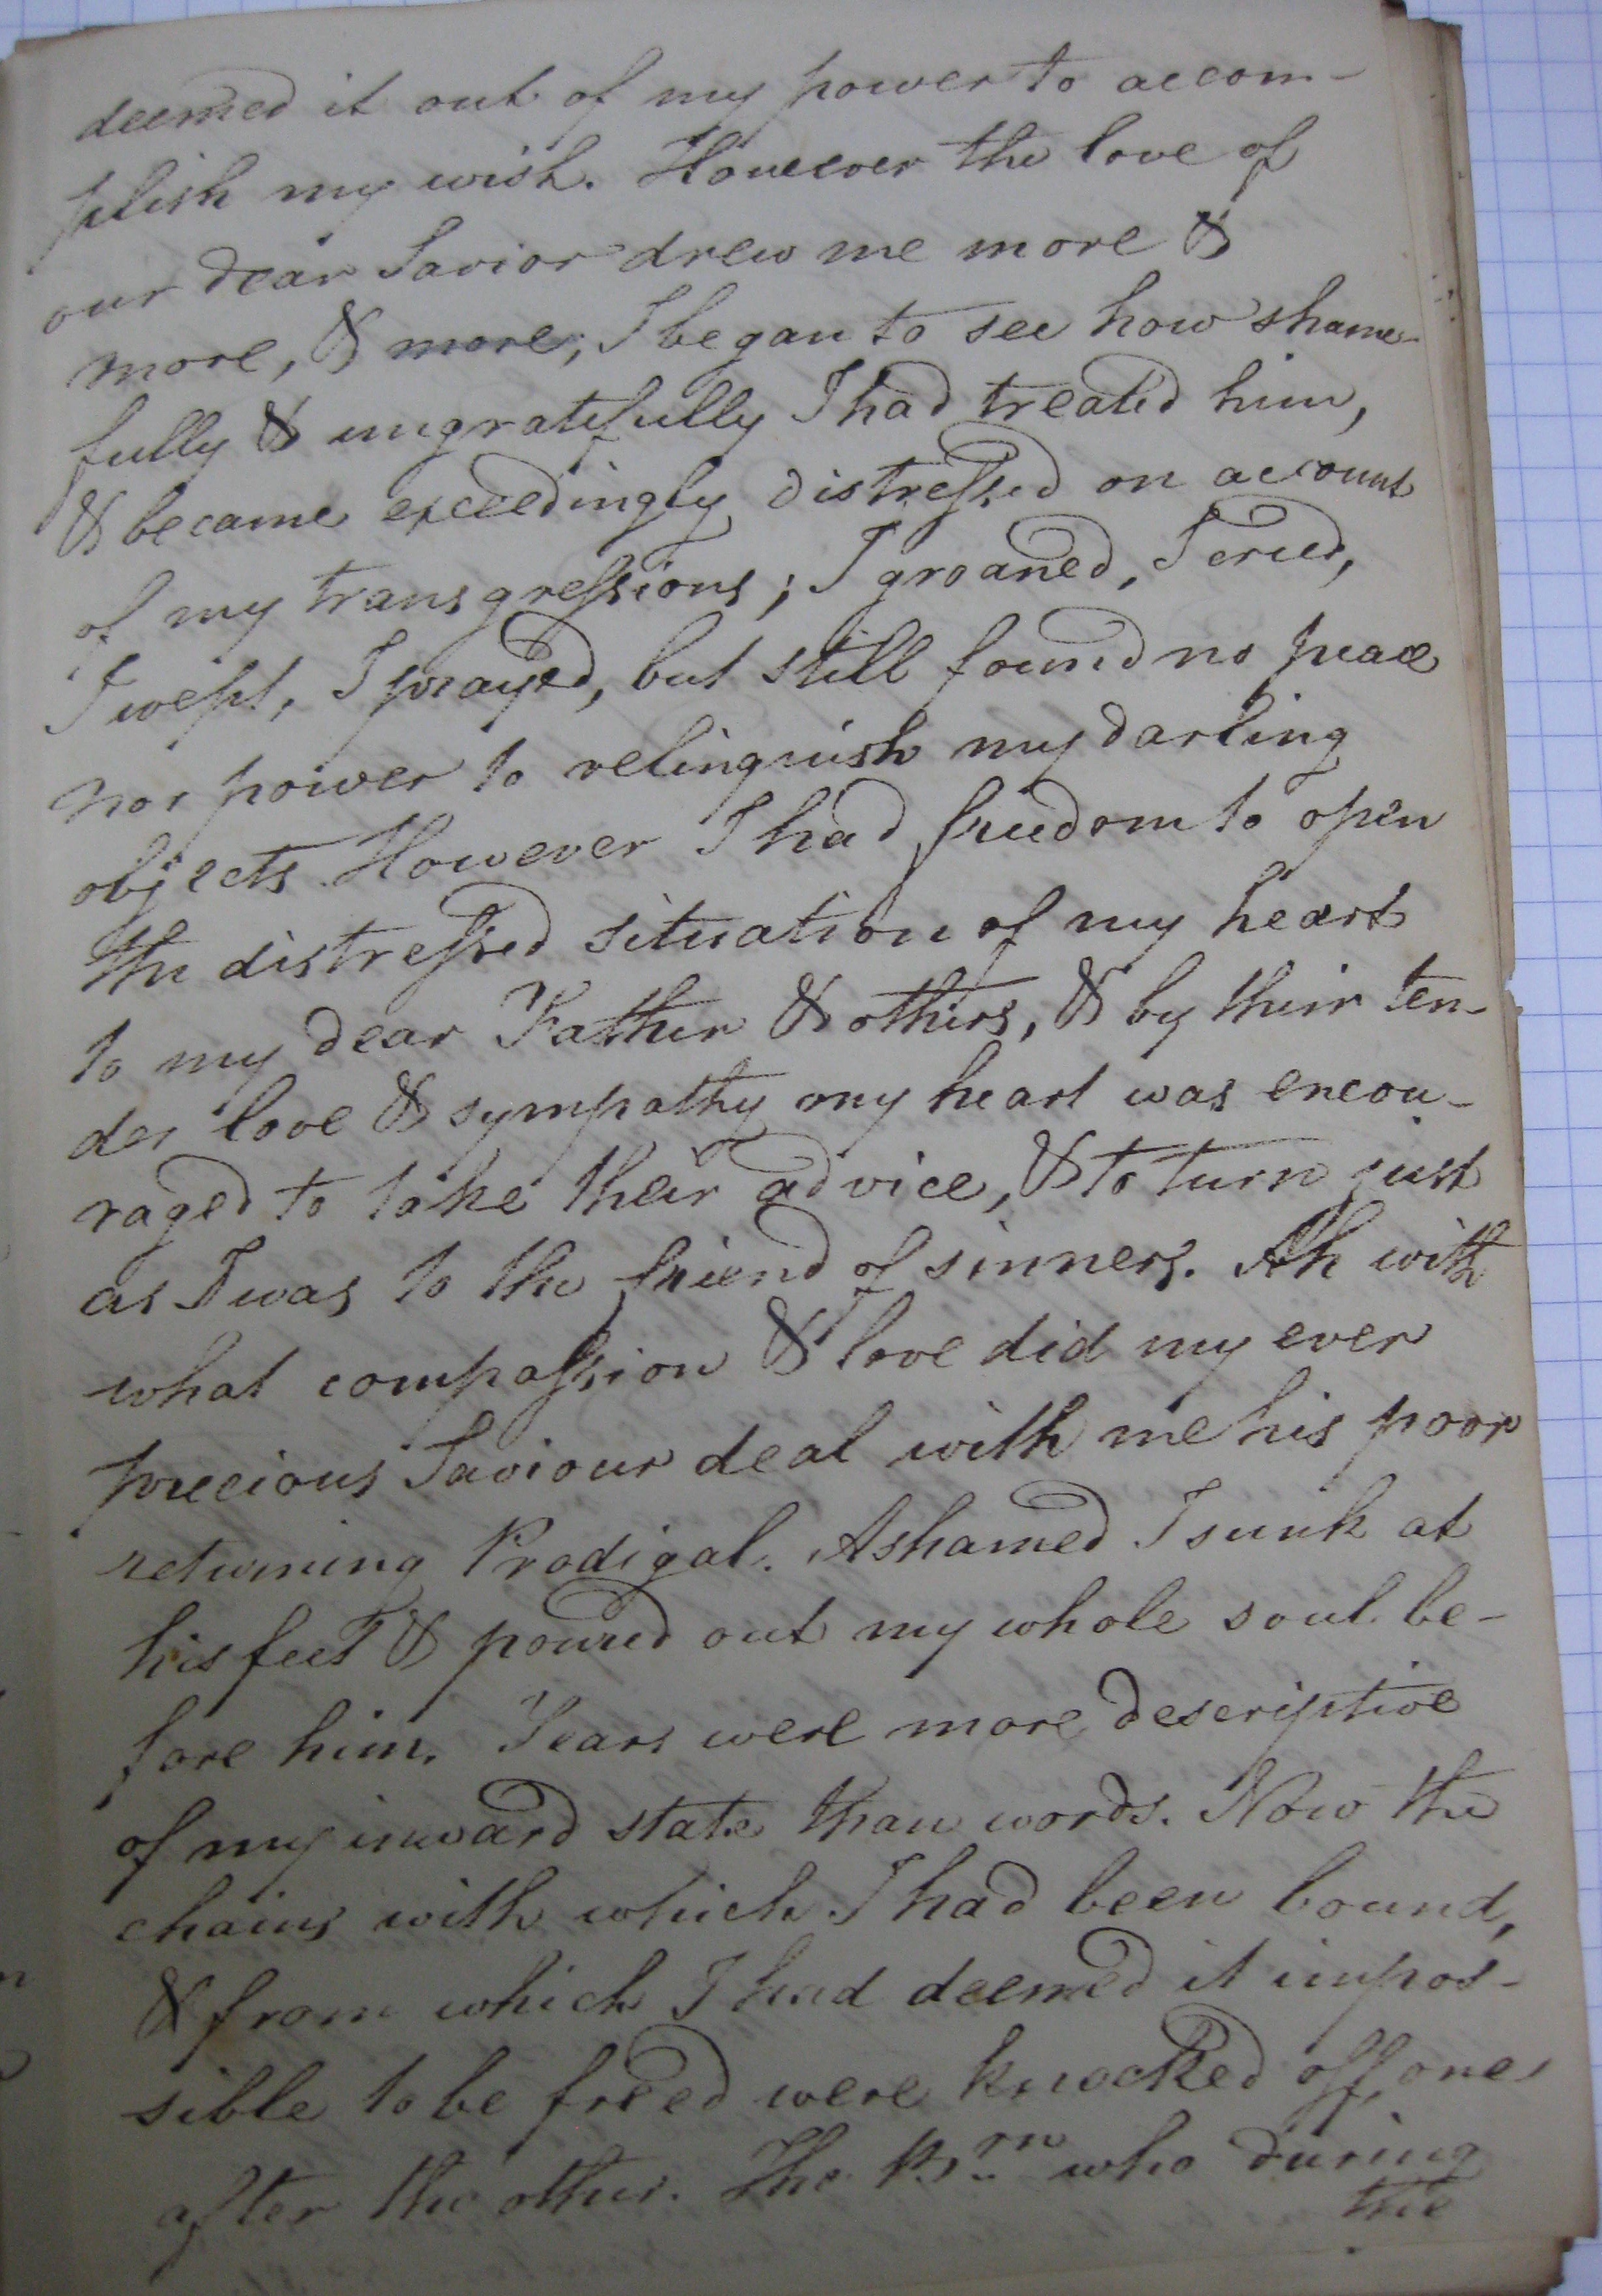 deemed it out of my power to accom-
plish my wish. However the love of
our dear Savior drew me more &
more, & more; I began to see how shame-
fully & ungratefully I had treated him,
& became exceedingly distressed on account
of my transgressions; I groaned, I cried,
I wept, I prayed, but still found no peace
nor power to relinquish my darling
objects. However I had freedom to open
the distressed situation of my heart
to my dear Father & others, & by their ten-
der love & sympathy my heart was encou-
raged to take their advice, & to turn just
as I was to the friend of sinners. Ah with
what compassion & love did my ever
precious Saviour deal with me his poor
returning Prodigal. Ashamed I sunk at
his feet & poured out my whole soul be-
fore him. Tears were more descriptive
of my inward state than words. Now the
chains with which I had been bound,
& from which I had deemed it impos-
sible to be freed were knocked off, one
after the other. The Brn who during
the